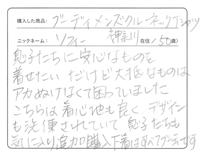 購入した商品: ブーディメンズクルーネックTシャツ
ニックネーム: ソフィー 神奈川 在住 / 50歳)
息子たちに安心なものを
着せたい だけど大抵なものは
アカぬけなくて困っていました
こちらは着心地も良く デザイン
も洗練されていて 息子たちも
気に入り追加購入